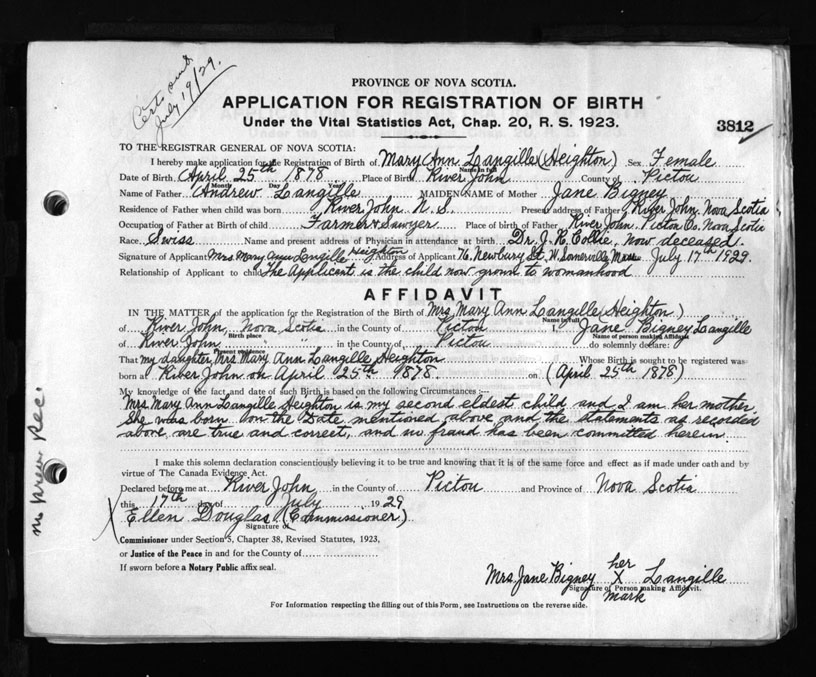 Certs sent
July 19/29.
PROVINCE OF NOVA SCOTIA.
APPLICATION FOR REGISTRATION OF BIRTH
Under the Vital Statistics Act, Chap. 20, R. S. 1923.
3812
TO THE REGISTRAR GENERAL OF NOVA SCOTIA:
I hereby make application for the Registration of Birth of Mary Ann Langille (Heighton) Sex Female
Name in full
Date of Birth April 25th 1878 Place of Birth River John County of Pictou
Month Day Year
Name of Father Andrew Langille MAIDEN NAME of Mother Jane Bigney
Residence of Father when child was born River John N. S. Present address of Father River John, Nova Scotia
Occupation of Father at Birth of child Farmer & Sawyer Place of birth of Father River John, Pictou Co. Nova Scotia
Race Swiss Name and present address of Physician in attendance at birth Dr. J. K. Collie, now deceased.
Signature of Applicant Mrs. Mary Ann Langille Heighton Address of Applicant 76 Newbury St. W. Somerville Mass July 17th 1929.
Relationship of Applicant to child The Applicant is the child now grown to womanhood
AFFIDAVIT
IN THE MATTER of the application for the Registration of the Birth of Mrs. Mary Ann Langille (Heighton)
Name in full
of River John, Nova Scotia in the County of Pictou I, Jane Bigney Langille
Birth place Name of person making Affidavit
of River John " " in the County of Pictou do solemnly declare:
Present residence
That my daughter, Mrs Mary Ann Langille Heighton Whose Birth is sought to be registered was
born at River John on April 25th 1878. on (April 25th 1878)
My knowledge of the fact and date of such Birth is based on the following Circumstances :—
Mrs. Mary Ann Langille Heighton is my second eldest child and I am her mother,
She was born on the Date mentioned above and the statements as recorded
above are true and correct, and no fraud has been committed herein
I make this solemn declaration conscientiously believing it to be true and knowing that it is of the same force and effect as if made under oath and by
virtue of The Canada Evidence Act.
Declared before me at River John in the County of Pictou and Province of Nova Scotia
this 17th day of July 1929
X Ellen Douglas (Commissioner)
Signature of
Commissioner under Section 5, Chapter 38, Revised Statutes, 1923,
or Justice of the Peace in and for the County of
If sworn before a Notary Public affix seal.
her
Mrs. Jane Bigney X Langille
Signature of Person making Affidavit.
mark
For Information respecting the filling out of this Form, see Instructions on the reverse side.
Rec.